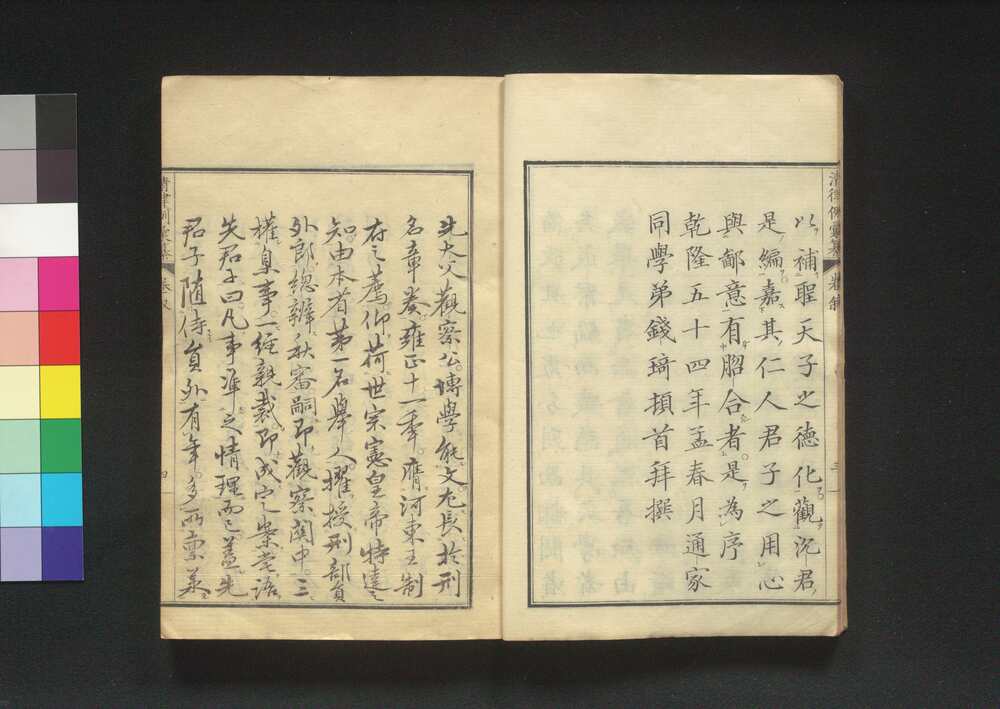 以補聖天子之德化觀沈君
是編嘉其仁人君子之用心
與鄙意有脗合者是為序
乾隆五十四年孟春月通家
同學弟錢琦頓首拜撰
先大父觀察公博學能文尤長於刑
名章奏雍正十一季膺河東王制
府之薦仰荷世宗憲皇帝特達之
知由本省第一名舉人擢授刑部員
外郎總辦秋審嗣即觀察關中三
權臬事一經親裁即成定案嘗語
先君子曰凡事準之情理而已蓋先
君子隨侍負外有年多所稟承